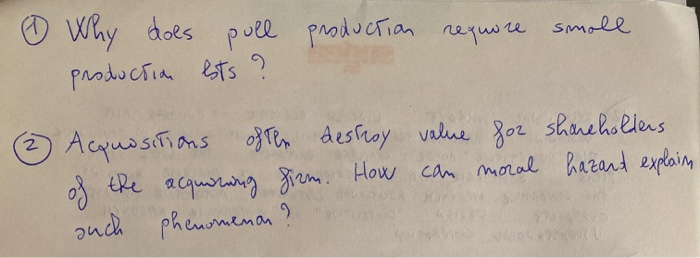 ① Why does pull production require small
production lots ?
② Acquisitions often destroy value for shareholders
of the acquiring firm. How can moral hazard explain
such phenomenon ?